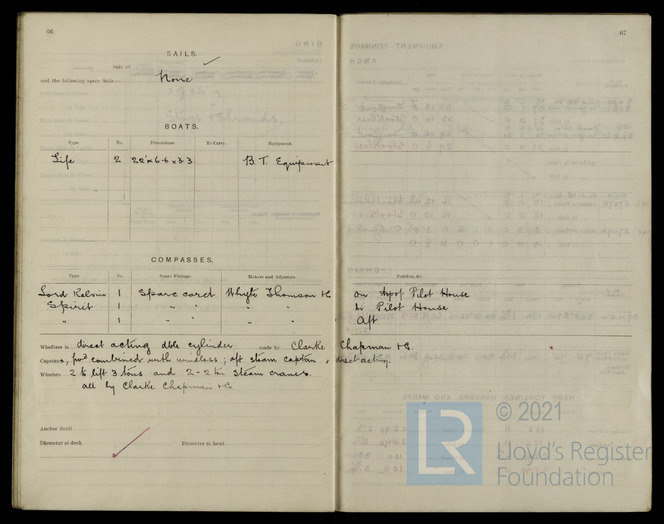 66
SAILS.
Suit of
and the following spare Sails
None
BOATS.
Type. No. Dimensions. To Carry. Equipment.
Life 2 22 x 6.6 x 3.3 B.T. Equipment
COMPASSES.
Type. No. Spare Fittings. Makers and Adjustors.
Lord Kelvin 1 Spare card Whyte Thomson & Co
Spirit 1 " " "
" 1 " " "
Windlass is direct acting dble cylinder made by Clarke Chapman & Co.
Capstans, fwd combined with windlass; aft steam capstan, direct acting.
Winches 2 to lift 3 tons and 2-2 ton steam cranes.
all by Clarke Chapman & Co
Anchor davit
Diameter at deck Diameter at head
67
Position, &c.
on top of Pilot House
in Pilot House
Aft
© 2021
LR
Lloyd's Register
Foundation